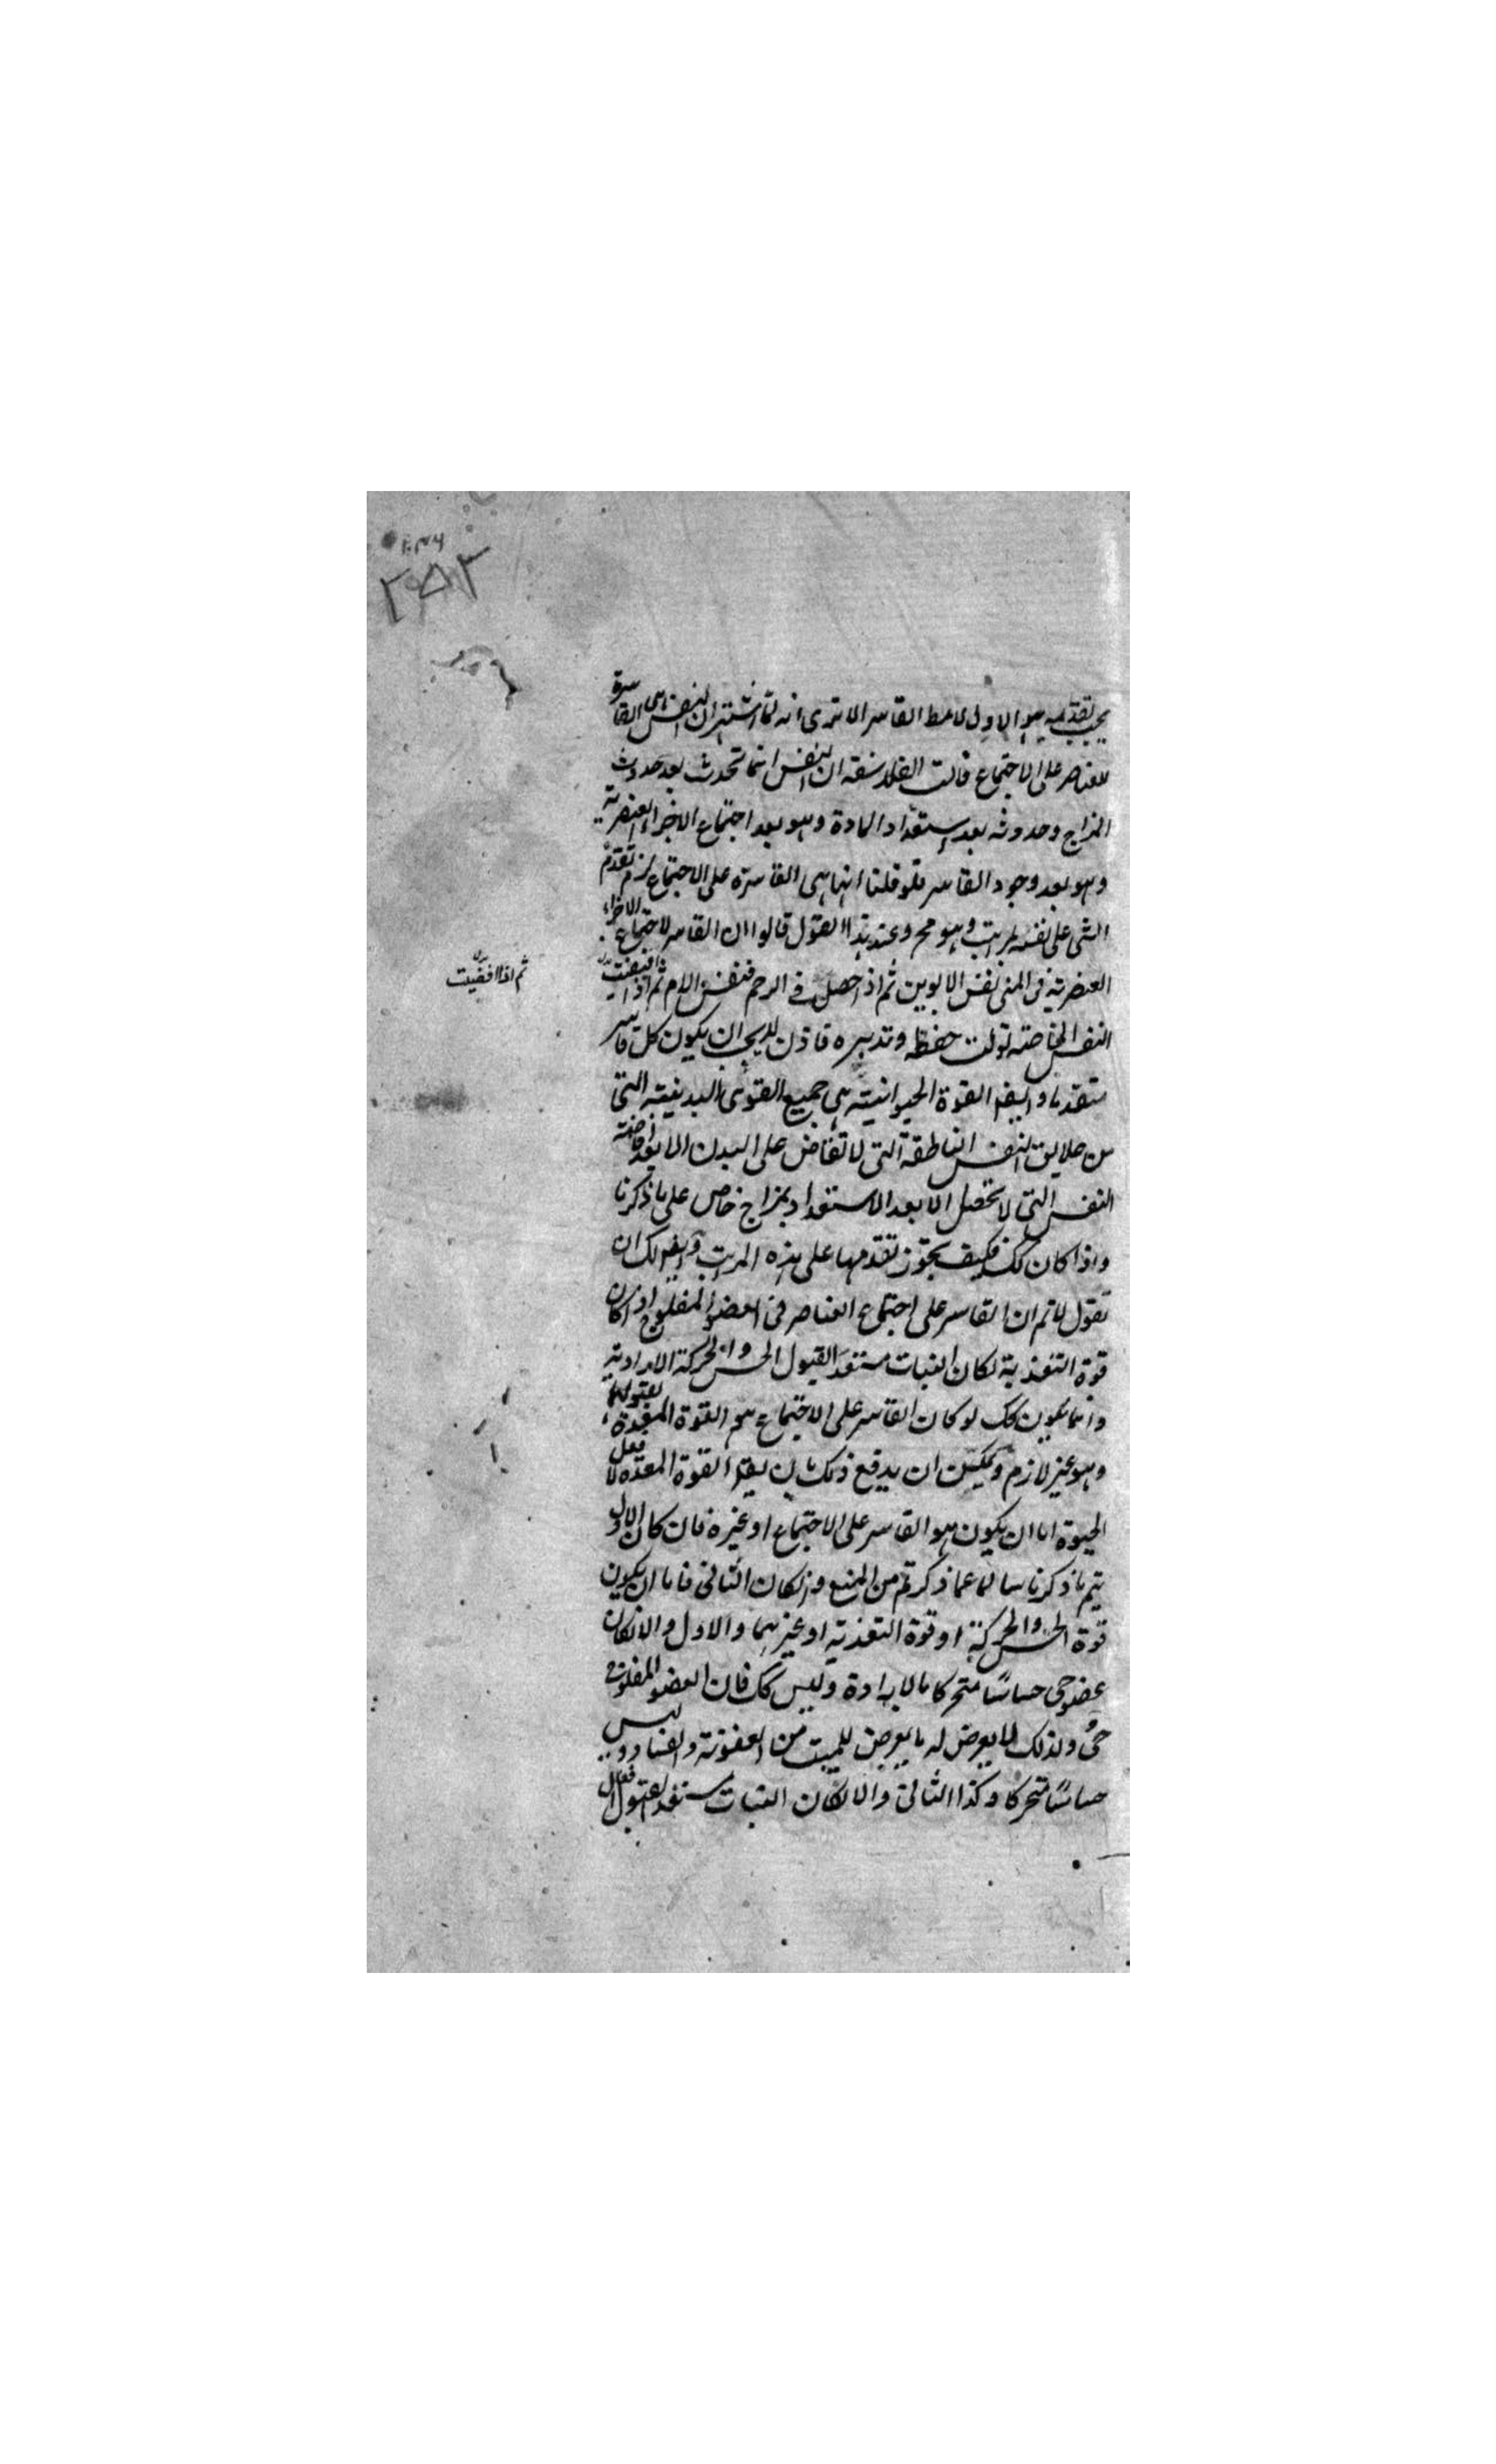 ٢٥٢
يجب تقدمه هو الاول لا مط القاسر الا ترى انه لما اشتهر ان النفس هى القاسرة
للعناصر على الاجتماع قالت الفلاسفة ان النفس انما تحدث بعد حدوث
المزاج وحدوثه بعد استعداد المادة وهو بعد اجتماع الاجزاء العنصرية
وهو بعد وجود القاسر فلو قلنا انها هى القاسرة على الاجتماع لزم تقدم
الشى على نفسه بمراتب وهو مح وعند هذا القول قالوا ان القاسر لاجتماع الاجزاء
العنصرية فى المنى نفس الابوين ثم اذا حصل فى الرحم فنفس الام ثم اذا افيضت
ثم اذا افضيت
النفس الخاصة تولت حفظه وتدبيره فاذن لا يجب ان يكون كل قاسر
متقدما وايضا القوة الحيوانية هى جميع القوى البدنية التى
من علايق النفس الناطقة التى لا تفاض على البدن الا بعد افاضة
النفس التى لا تحصل الا بعد الاستعداد بمزاج خاص على ما ذكرنا
واذا كان كك فكيف يجوز تقدمها على هذه المراتب وايضا لك ان
تقول لا تم ان القاسر على اجتماع العناصر فى العضو المفلوج اذا كان
قوة التغذية لكان النبات مستعدا لقبول الحس والحركة الارادية
وانما يكون كك لو كان القاسر على الاجتماع هو القوة المعدة لقبولهما
وهو غير لازم ويمكن ان يدفع ذلك بان يقم القوة المعدة لا فعل
الحيوة اما ان يكون هو القاسر على الاجتماع او غيره فان كان الاول
يتم ما ذكرنا سالما عما ذكرتم من المنع وان كان الثانى فاما ان يكون
قوة الحس والحركة او قوة التغذية او غيرهما والاول والا لكان
عضو حى حساسا متحركا بالارادة وليس كك فان العضو المفلوج
حى ولذلك لا يعرض له ما يعرض للميت من العفونة والفساد وليس
حساسا متحركا وكذا الثانى والا لكان النبات مستعدا لقبول افعال